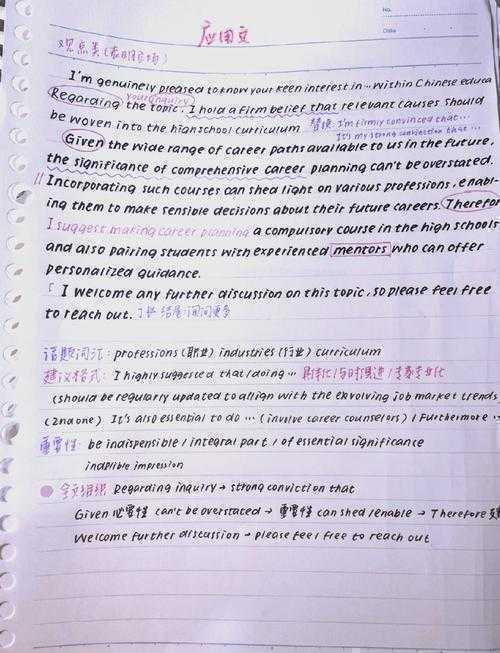 No.
Date
应用文
观点类(表明立场)
I'm genuinely pleased to know your keen interest in … within Chinese educa
your inquiry
Regarding the topic. I hold a firm belief that relevant causes should
be woven into the highschool curriculum 替换 I'm firmly convinced that …
It's my strong conviction that …
Given the wide range of career paths available to us in the future,
the significance of comprehensive career planning can't be overstated.
Incorporating such courses can shed light on various professions, enabl-
ing them to make sensible decisions about their future careers. Therefor
I suggest making career planning a compulsory course in the high schools
and also pairing students with experienced mentors who can offer
personalized guidance.
I welcome any further discussion on this topic, so please feel free
to reach out.
话题词汇: professions (职业) industries (行业) curriculum
建议格式: I highly suggested that / doing … 具体化/与时俱进/
(should be regularly updated to allign with the exvolving job market trends
(2nd one) It's also essential to do … (involve career counselors) / Furthermore …
重要性: be indispensible / integral part / of essential significance
indelible impression
全文组织 Regarding inquiry → strong conviction that
Given 必要性 can't be overstated → 重要性 can shed / enable → Therefore
Welcome further discussion → please feel free to reach out